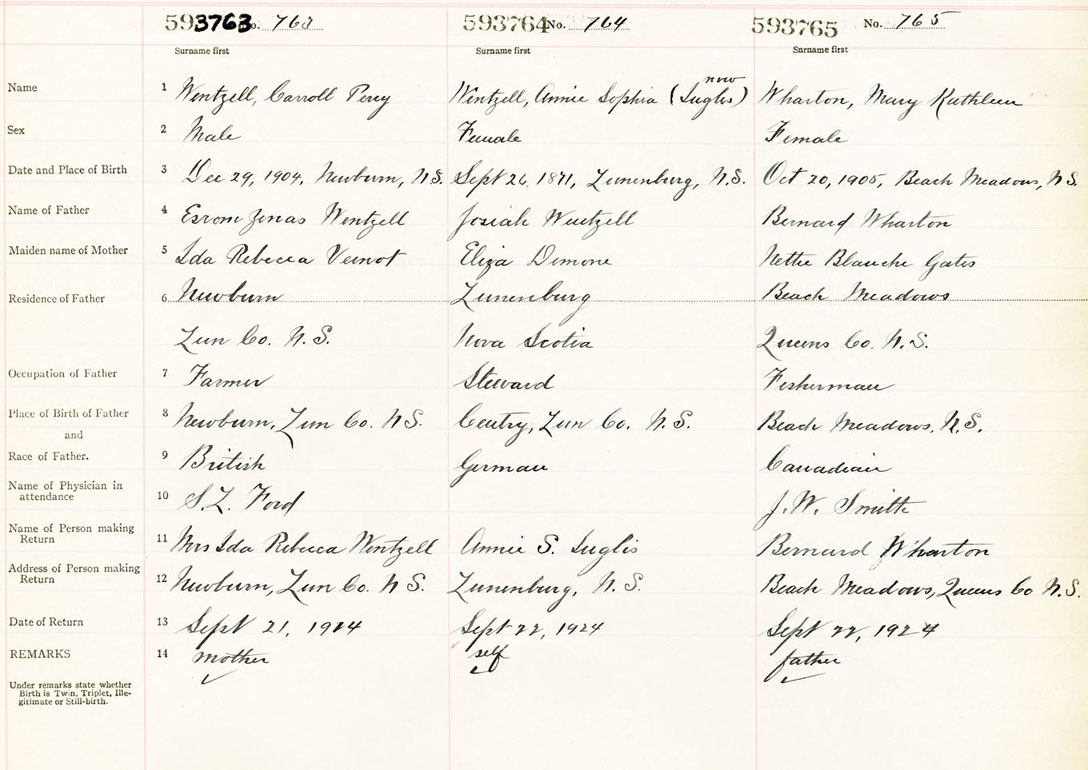 593763 No. 763 593764 No. 764 593765 No. 765
Surname first Surname first Surname first
Name 1 Wentzell, Carroll Percy Wentzell, Annie Sophia (now Inglis) Wharton, Mary Kathleen
Sex 2 Male Female Female
Date and Place of Birth 3 Dec 29, 1904, Newburn, N.S. Sept 26, 1871, Lunenburg, N.S. Oct 20, 1905, Beach Meadows, N.S.
Name of Father 4 Esrom Zenas Wentzell Josiah Wentzell Bernard Wharton
Maiden name of Mother 5 Ida Rebecca Veinot Eliza Demone Nettie Blanche Gates
Residence of Father 6 Newburn Lunenburg Beach Meadows
Lun Co. N.S. Nova Scotia Queens Co. N.S.
Occupation of Father 7 Farmer Steward Fisherman
Place of Birth of Father 8 Newburn, Lun Co. N.S. Centry, Lun Co. N.S. Beach Meadows, N.S.
and
Race of Father. 9 British German Canadian
Name of Physician in
attendance 10 S.L. Ford J.W. Smith
Name of Person making
Return 11 Mrs Ida Rebecca Wentzell Annie S. Inglis Bernard Wharton
Address of Person making
Return 12 Newburn, Lun Co. N.S. Lunenburg, N.S. Beach Meadows, Queens Co N.S.
Date of Return 13 Sept 21, 1924 Sept 22, 1924 Sept 22, 1924
REMARKS 14 mother self father
Under remarks state whether
Birth is Twin, Triplet, Ille-
gitimate or Still-birth.